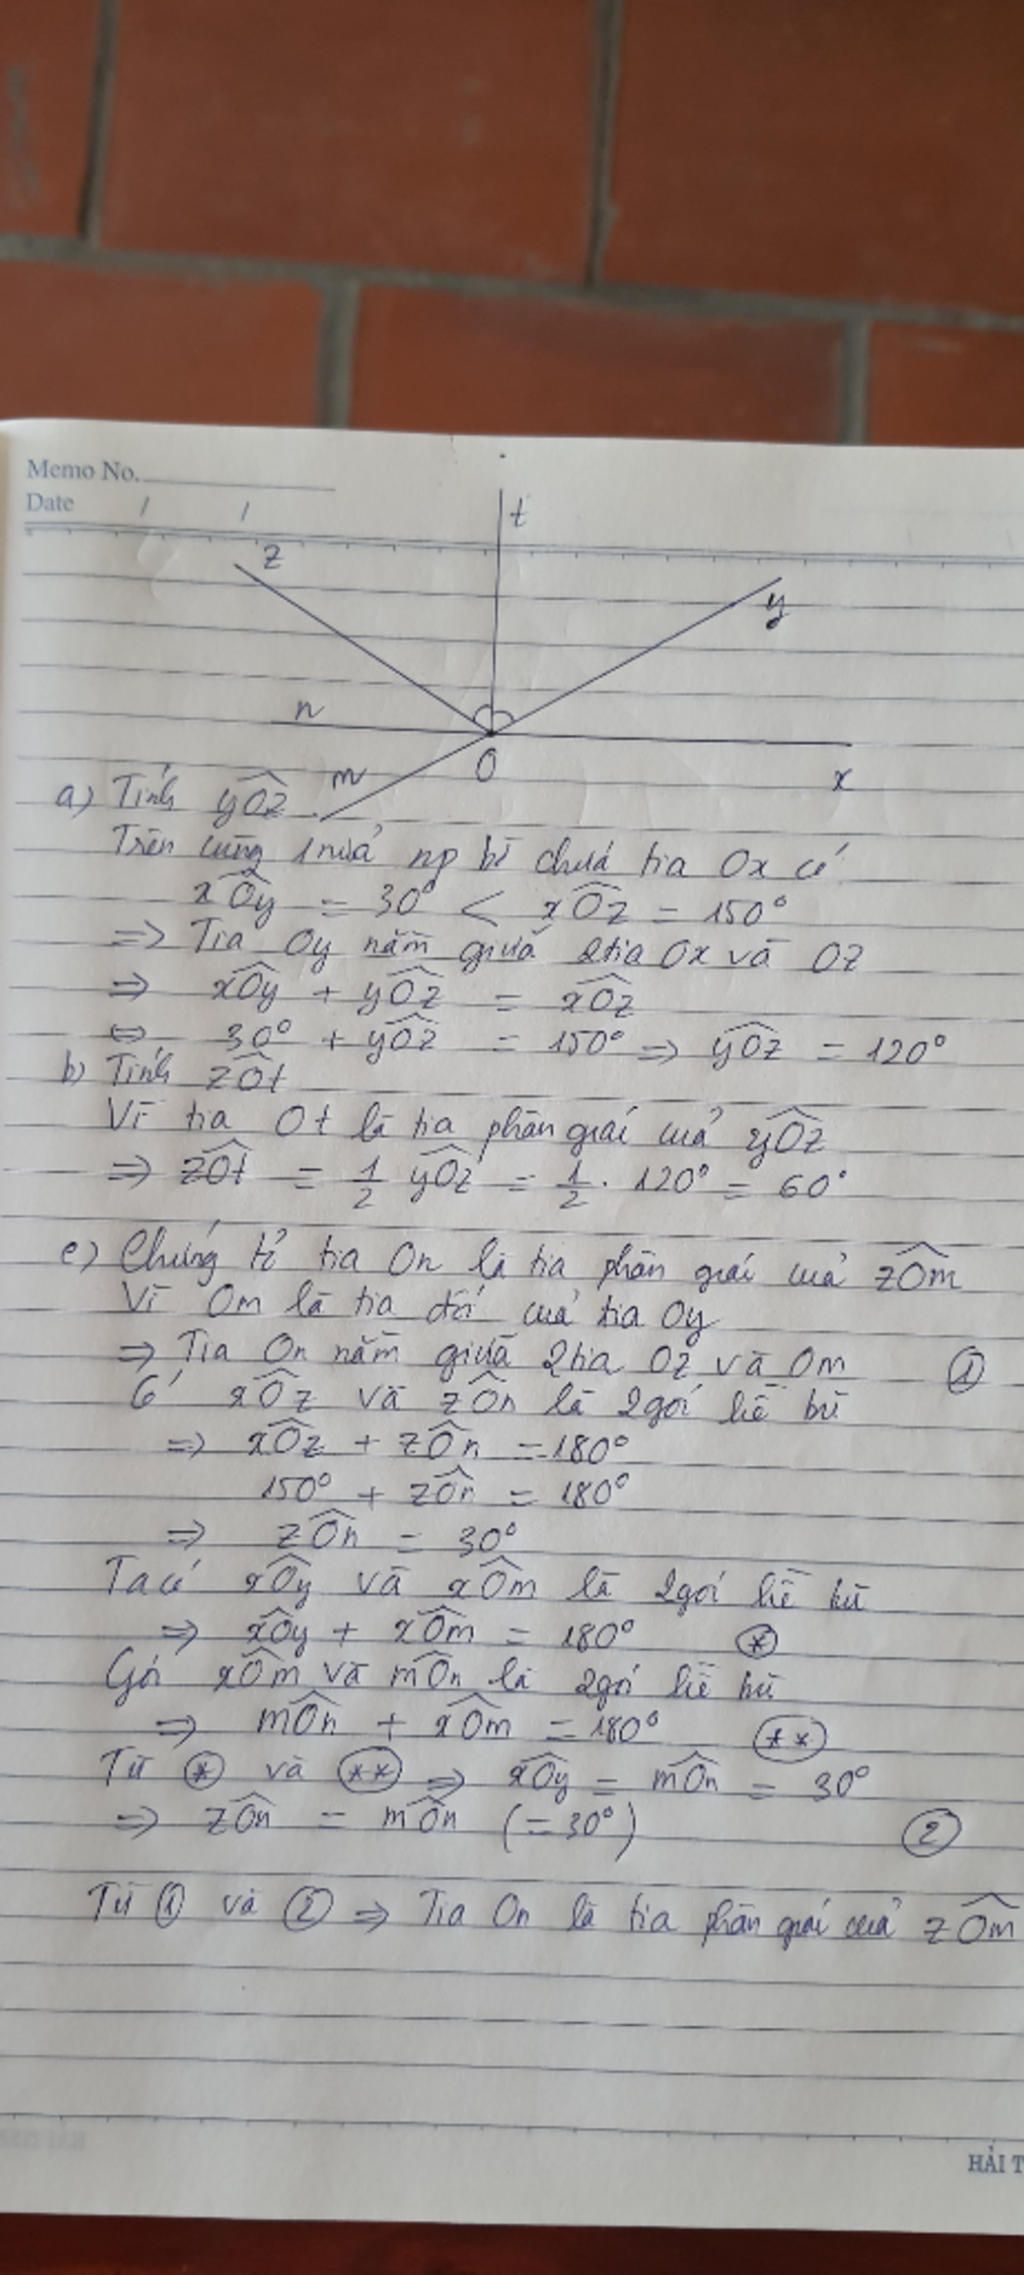 Memo No.
Date / /
t
z
y
n
O
m
x
a) Tính yÔz
Trên cùng 1 nửa mp bờ chứa tia Ox có
xÔy = 30° < xÔz = 150°
=> Tia Oy nằm giữa 2 tia Ox và Oz
=> xÔy + yÔz = xÔz
<=> 30° + yÔz = 150° => yÔz = 120°
b) Tính zÔt
Vì tia Ot là tia phân giác của yÔz
=> zÔt = 1/2 yÔz = 1/2 . 120° = 60°
c) Chứng tỏ tia On là tia phân giác của zÔm
Vì Om là tia đối của tia Oy
=> Tia On nằm giữa 2 tia Oz và Om ①
Có xÔz và zÔn là 2 góc kề bù
=> xÔz + zÔn = 180°
150° + zÔn = 180°
=> zÔn = 30°
Ta có xÔy và xÔm là 2 góc kề bù
=> xÔy + xÔm = 180° (*)
Góc xÔm và mÔn là 2 góc kề bù
=> mÔn + xÔm = 180° (**)
Từ (*) và (**) => xÔy = mÔn = 30°
=> zÔn = mÔn (= 30°) ②
Từ ① và ② => Tia On là tia phân giác của zÔm
HẢI T